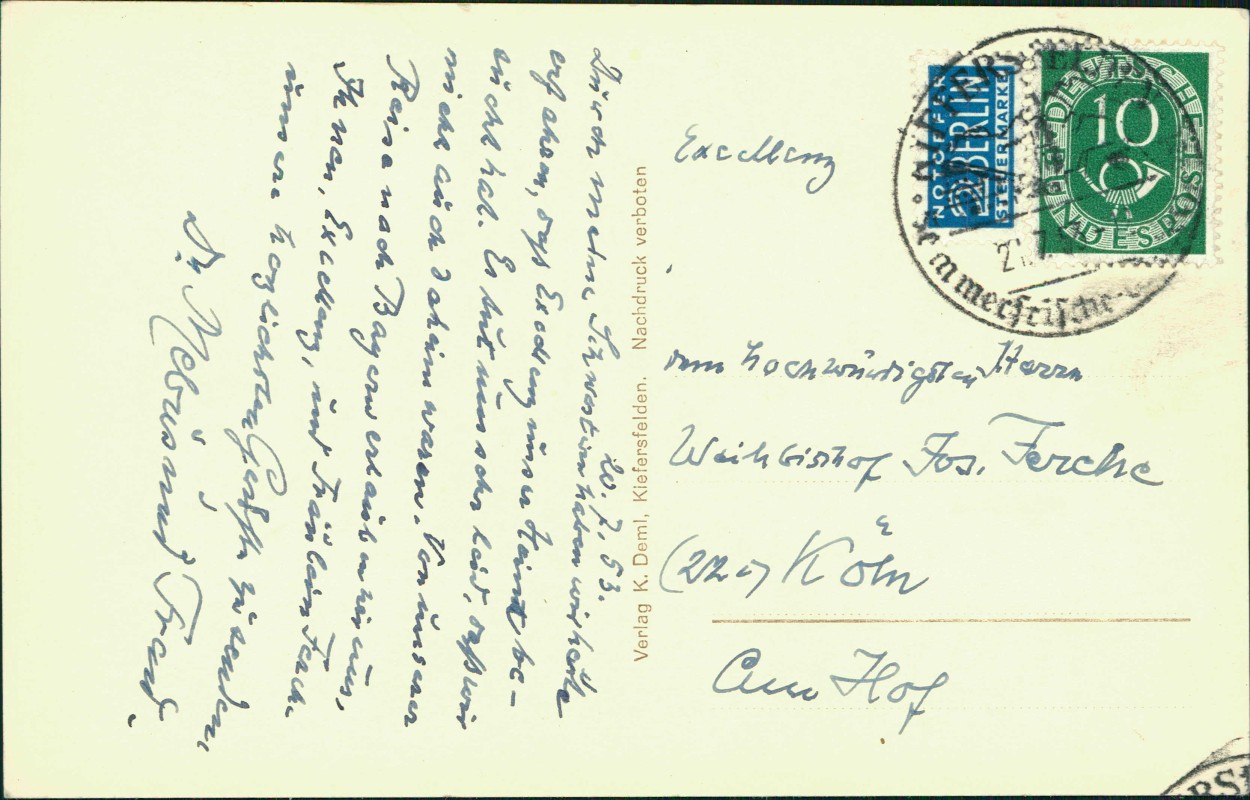 20. 7. 53.
Durch meine Schwestern haben wir heute
erfahren, daß Excellenz unser Heim be-
sucht hat. Es tut uns sehr leid, daß wir
nicht auch daheim waren. Von unserer
Reise nach Bayern erlauben wir uns,
Ihnen, Excellenz, und Fräulein Ferche
unsere herzlichsten Grüße zu senden.
Dr. und Frau.
Verlag K. Deml, Kiefersfelden. Nachdruck verboten
NOTOPFER
2 BERLIN
STEUERMARKE
DEUTSCHE
10
BUNDESPOST
KIEFERSFELDEN
7
Sommerfrische
Excellenz
dem hochwürdigsten Herrn
Weihbischof Jos. Ferche
(22c) Köln
Am Hof
ERSF